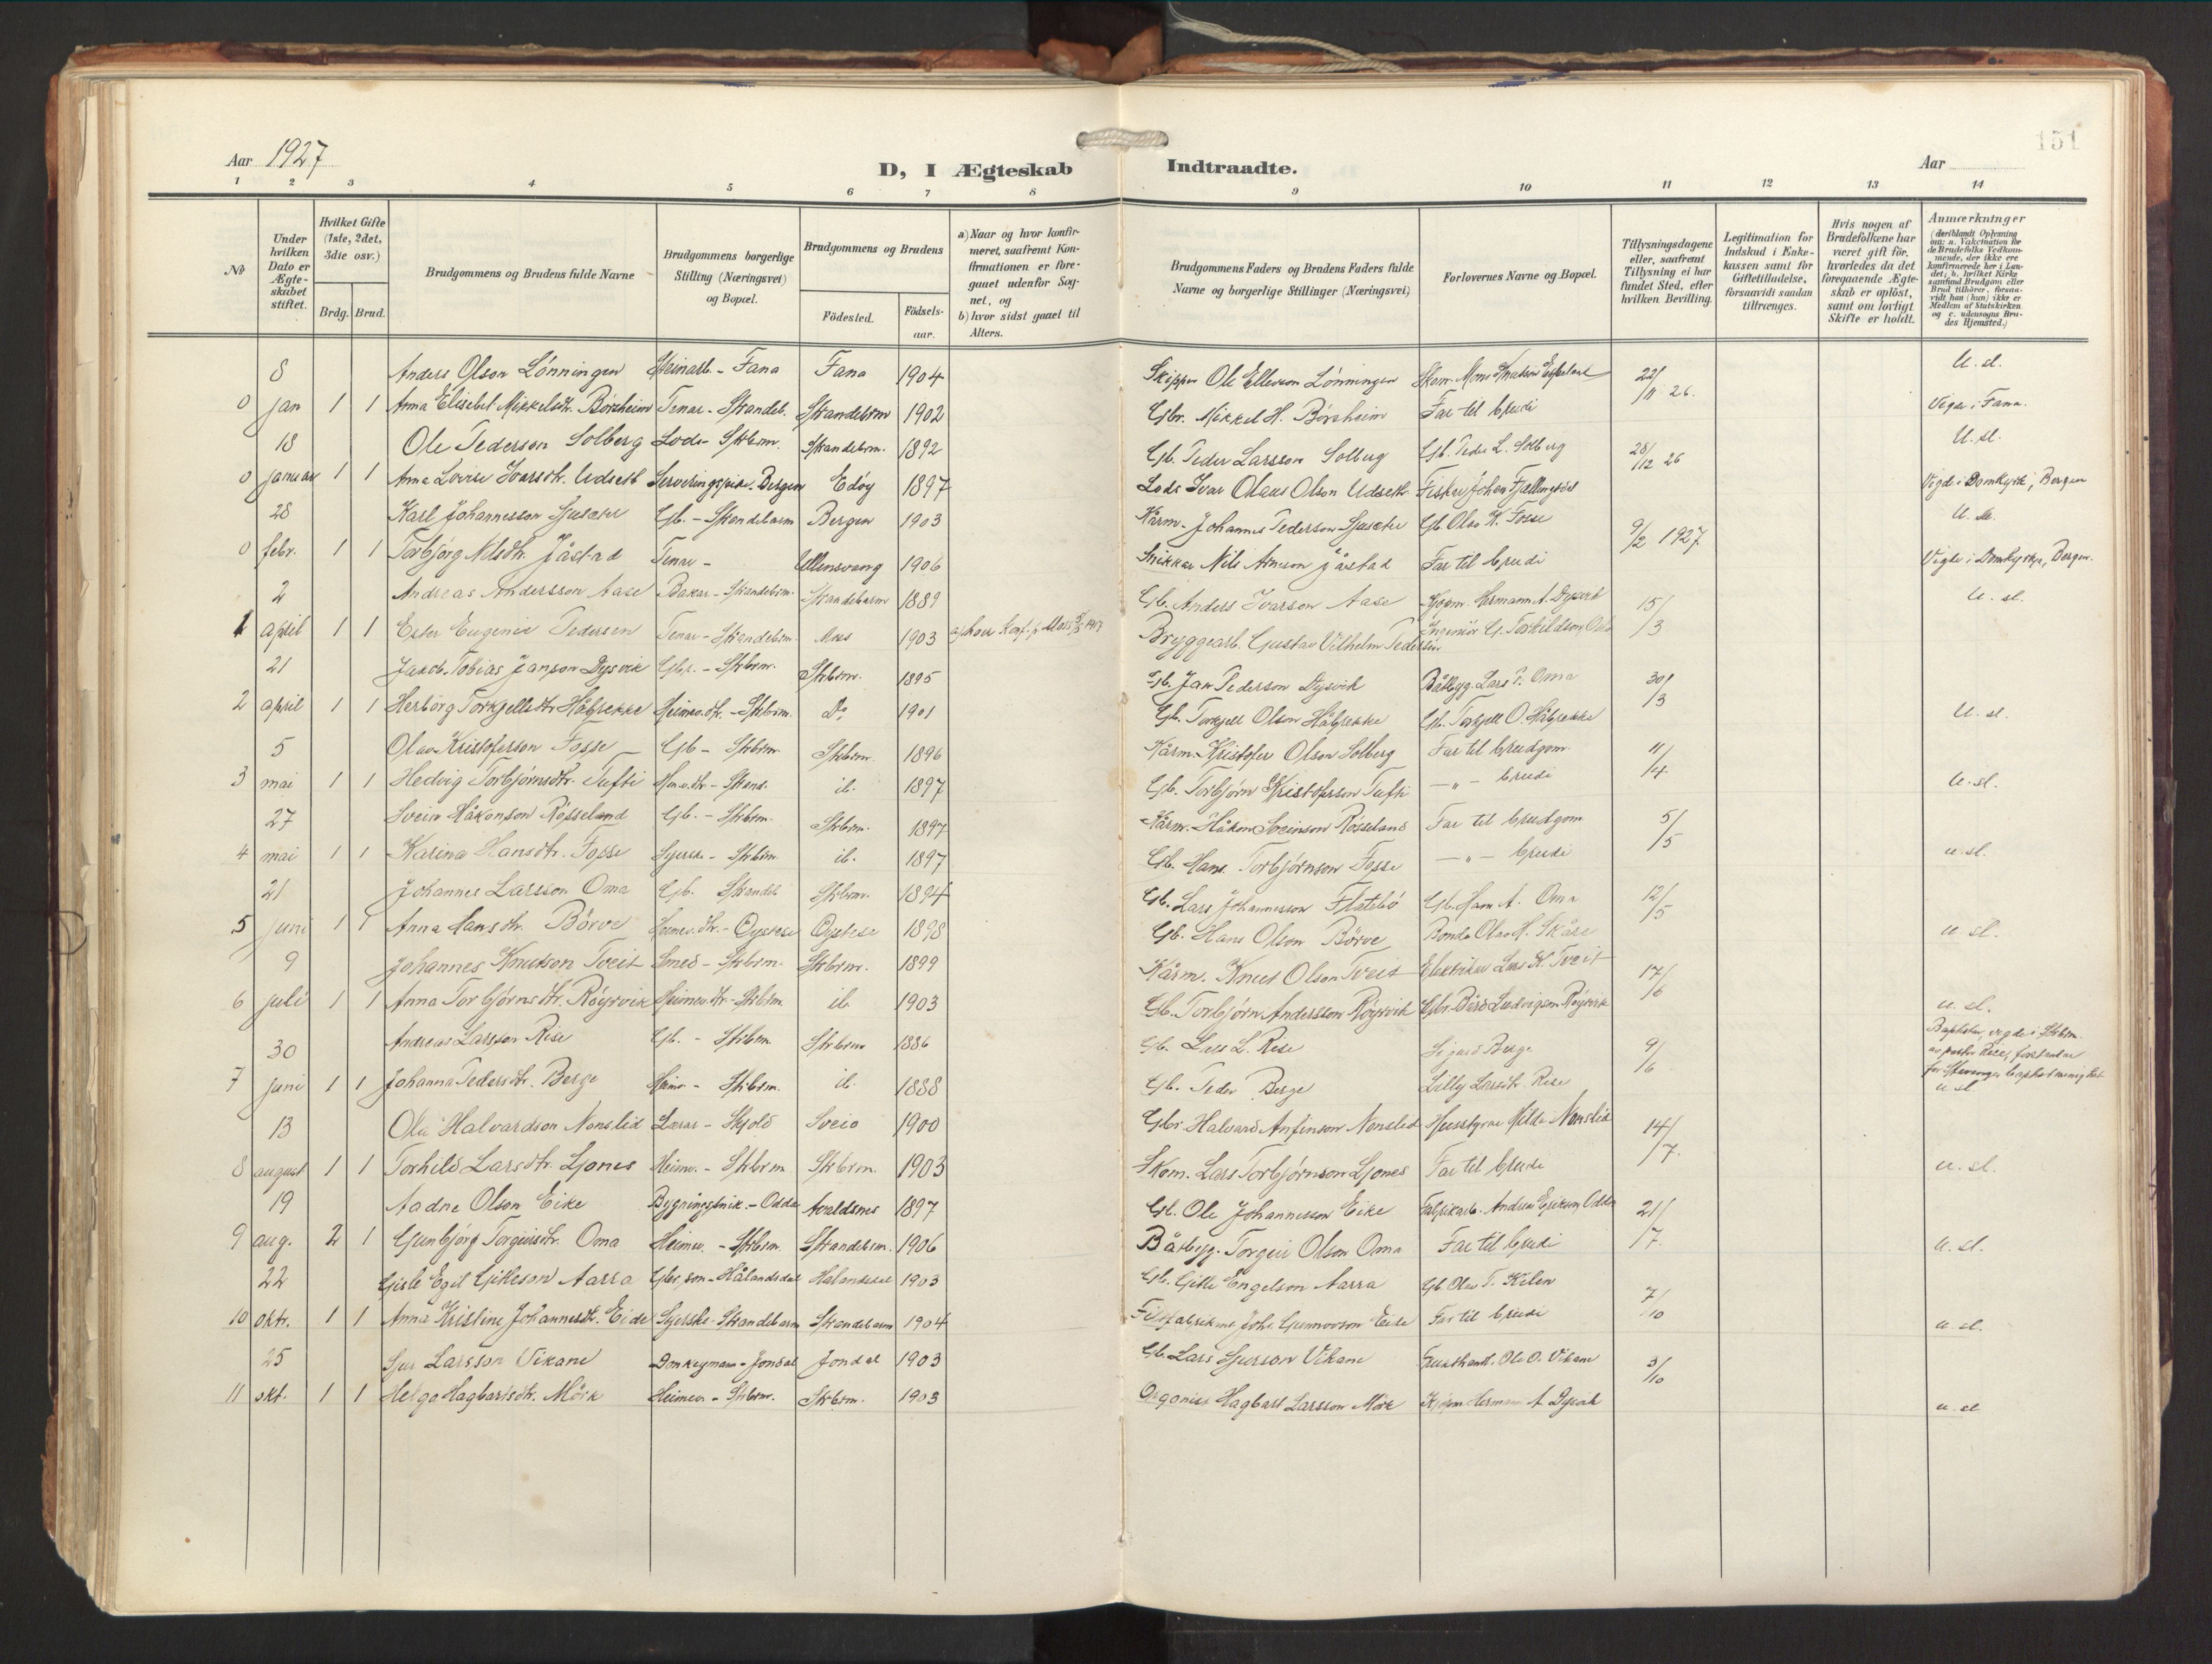 151
Aar 1927
D, I Ægteskab Indtraadte.
Aar
1 2 3 4 5 6 7 8 9 10 11 12 13 14
No
Under hvilken Dato er Ægteskabet stiftet.
Hvilket Gifte (1ste, 2det, 3die osv.)
Brdg. Brud.
Brudgommens og Brudens fulde Navne
Brudgommens borgerlige Stilling (Næringsvei) og Bopæl.
Brudgommens og Brudens
Födested. Födselsaar.
a) Naar og hvor konfirmeret, saafremt Konfirmationen er foregaaet udenfor Sognet, og
b) hvor sidst gaaet til Alters.
Brudgommens Faders og Brudens Faders fulde Navne og borgerlige Stillinger (Næringsvei)
Forlovernes Navne og Bopæl.
Tillysningsdagene eller, saafremt Tillysning ei har fundet Sted, efter hvilken Bevilling.
Legitimation for Indskud i Enkekassen samt for Giftetilladelse, forsaavidt saadan tiltrænges.
Hvis nogen af Brudefolkene har været gift för, hvorledes da det foregaaende Ægteskab er oplöst, samt om lovligt Skifte er holdt.
Anmærkninger (deriblandt Oplysning om: a. Vakcination for de Brudefolks Vedkommende, der ikke ere konfirmerede her i Landet; b. hvilket Kirkesamfund Brudgom eller Brud tilhörer, forsaavidt han (hun) ikke er Medlem af Statskirken og c. udensogns Brudes Hjemsted.)
8 Anders Olson Lönningen Steinarb. - Fana Fana 1904 Skipper Ole Ellevson Lönningen Skom. Mons Knutson 22/11 26. U. sl.
0 jan 1 1 Anna Elisebet Mikkelsdtr. Börsheim Tenar - Strandeb. Strandebrm 1902 Gbr. Mikkel H. Börsheim Far til brudi Vigde i Fana.
18 Ole Pederson Solberg Lods - Strbrm. Strandebrm. 1892 Gb. Peder Larsson Solberg Gb. Peder L. Solberg 28/12 26 U. sl.
0 januar 1 1 Anna Lovise Ivarsdtr. Udseth Bergen Edöy 1897 Lods Ivar Olaus Olson Udseth. Fiskar Johan Vigde i Domkyrk, Bergen
28 Karl Johannesson Sjusæter Gb. - Strandebarm Bergen 1903 Kårm. Johannes Pederson Sjusæter Gb. Olav K. Fosse 9/2 1927 U. sl.
0 febr. 1 1 Torbjörg Nilsdtr. Jåstad Tenar - Ullensvang 1906 Snikkar Nils Arneson Jåstad Far til brudi Vigde i Domkyrkja, Bergen.
2 Andreas Andersson Aase Bakar - Strandebrm. Strandebarm 1889 Gb. Anders Ivarson Aase Kjøpm. Hermann A. Dysvik 15/3 U. sl.
1 april 1 1 Ester Eugenie Pedersen Tenar - Strandebrm. Moss 1903 Bryggearb. Gustav Vilhelm Pedersen Ingeniör G. Torkildson, Oslo
21 Jakob Tobias Janson Dysvik Gbr. - Strbrm. Strbrm. 1895 Gb. Jan Pederson Dysvik Båtbyg. Lars P. Oma 30/3
2 april 1 1 Herborg Torkjellsdtr Håbrekke Heimev.dtr. - Strbrm. Do 1901 Gb. Torkjell Olson Håbrekke Gb. Torkjell O. Håbrekke U. sl.
5 Olav Kristoferson Fosse Gb - Strbrm. Strbrm. 1896 Kårm. Kristofer Olson Solberg Far til brudgom 11/4
3 mai 1 1 Hedvig Torbjörnsdtr. Tufti Hm.v.dtr - Strand. ib. 1897 Gb. Torbjörn Kristoferson Tufti - " - brudi U. sl.
27 Svein Håkonson Rösseland Gb. - Strbrm. Strbrm. 1897 Kårm. Håkon Sveinson Rösseland Far til brudgom 5/5
4 mai 1 1 Karina Hansdtr. Fosse Syerske - Strbrm ib. 1897 Gb. Hans Torbjörnson Fosse - " - brudi u. sl.
21 Johannes Larsson Oma Gb. Strandeb Strbrm. 1894 Gb. Lars Johannesson Flatebö Gb. Hans A. Oma 12/5
5 juni 1 1 Anna Hansdtr. Börve Heimev.dtr. - Öystese Öystese 1898 Gb. Hans Olson Börve Bonde Olav H. Skåre u. sl.
9 Johannes Knutson Tveit Smed - Strbrm. Strbrm. 1899 Kårm. Knut Olson Tveit Elektrikar Lars K. Tveit 17/6
6 juli 1 1 Anna Torbjörnsdtr. Röyrvik Heimev.dtr - Strbrm. ib 1903 Gb. Torbjörn Andersson Röyrvik Gbr. Bård Ludvigson Röyrvik u. sl.
30 Andreas Larsson Rise Gb. - Strbrm. Strbrm 1886 Gb. Lars L. Rise Sigurd Berge 9/6 Baptistar, vigde i Strbrm. av pastor Rise, forstandar for Stavanger baptistmenighet
7 juni 1 1 Johanna Pedersdtr. Berge Heim - Strbrm. ib. 1888 Gb. Peder Berge Lilly Larsdtr. Rise u sl
13 Ola Halvardson Nonslid Lærar - Skjold Sveio 1900 Gbr Halvard Anfinson Nonslid Husstyrar Hilda Nonslid 14/7.
8 august 1 1 Torhild Larsdtr. Ljones Heimv. - Strbrm Strbrm. 1903 Skom. Lars Torbjörnson Ljones Far til brudi u. sl.
19 Aadne Olson Eike Bygningssnik. - Odda Avaldsnes 1897 Gb. Ole Johannesson Eike Fabrikarb. Andreas Erikson, Odda 21/7.
9 aug. 2 1 Gunbjörg Torgeirsdtr. Oma Heimev. - Strbrm. Strandebrm. 1906 Båtbyg. Torgeir Olson Oma Far til brudi u. sl.
22 Gisle Egil Gitleson Aarra Gbr.son - Hålandsdal Halandsdal 1903 Gb. Gitle Engelson Aarra Gb. Olav T. Kilen 7/10
10 oktr. 1 1 Anna Kristine Johannesdtr. Eide Syerske - Strandebarm Strandebarm 1904 Joh. Gunnarson Eide Far til brudi u. sl.
25 Sjur Larsson Vikane Donkeymann - Jondal Jondal 1903 Gb Lars Sjurson Vikane Frukthandl. Ole O. Vikane 3/10
11 okt. 1 1 Helga Hagbartsdtr. Mörk Heimev - Strbrm. Strbrm. 1903 Organist Hagbart Larsson Mörk Kjöpm Herman A Dysvik u. sl